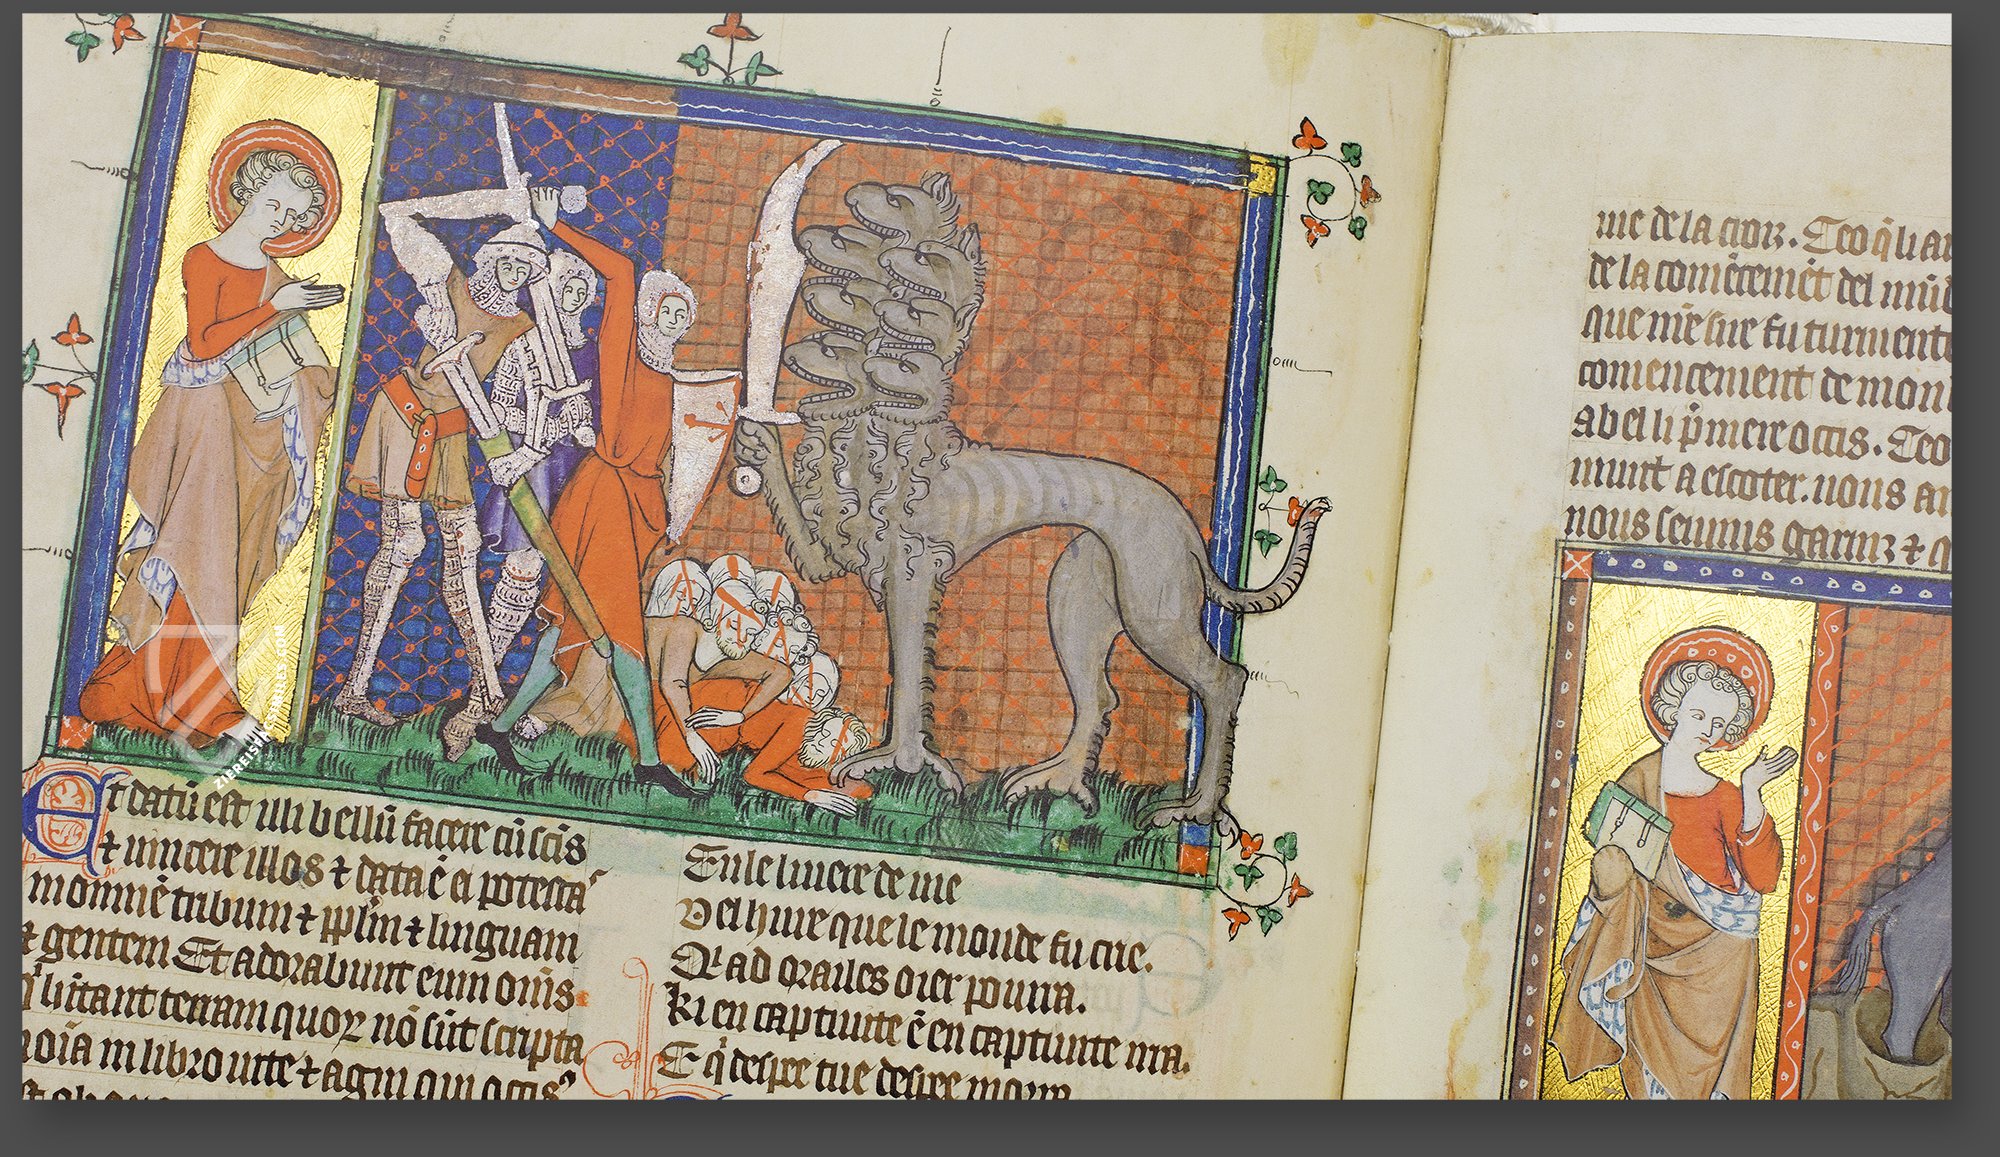 Et datū est illi bellū facere cū scīs
⁊ uincere illos ⁊ data ē ei potesta
m omnē tribum ⁊ pplm̄ ⁊ linguam
⁊ gentem Et adorabunt eum om̄s
q̄ hītant terram quoꝝ nō sūt scripta
noīa in libro uite ⁊ agni qui occisꝰ
En le liuere de uie
Del hure que le monde fu crie.
ad orailes oier pourra.
Ki en captiuite ē en captiuite irra.
E q̄ despee tue despee
me de la croiz. Ceo q̄ li
de la comēcemēt del
que me sire fu turment
comencement de mon
abel li p̄mere occis. Ceo
munt a escoter. nous
nous seiums garniz ⁊ q
ZIEREIS FACSIMILES.COM